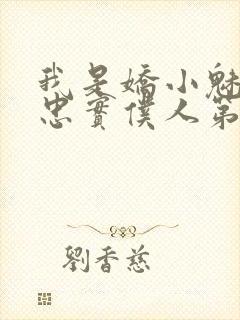 我是嬌小魅
忠實僕人第
劉香慈